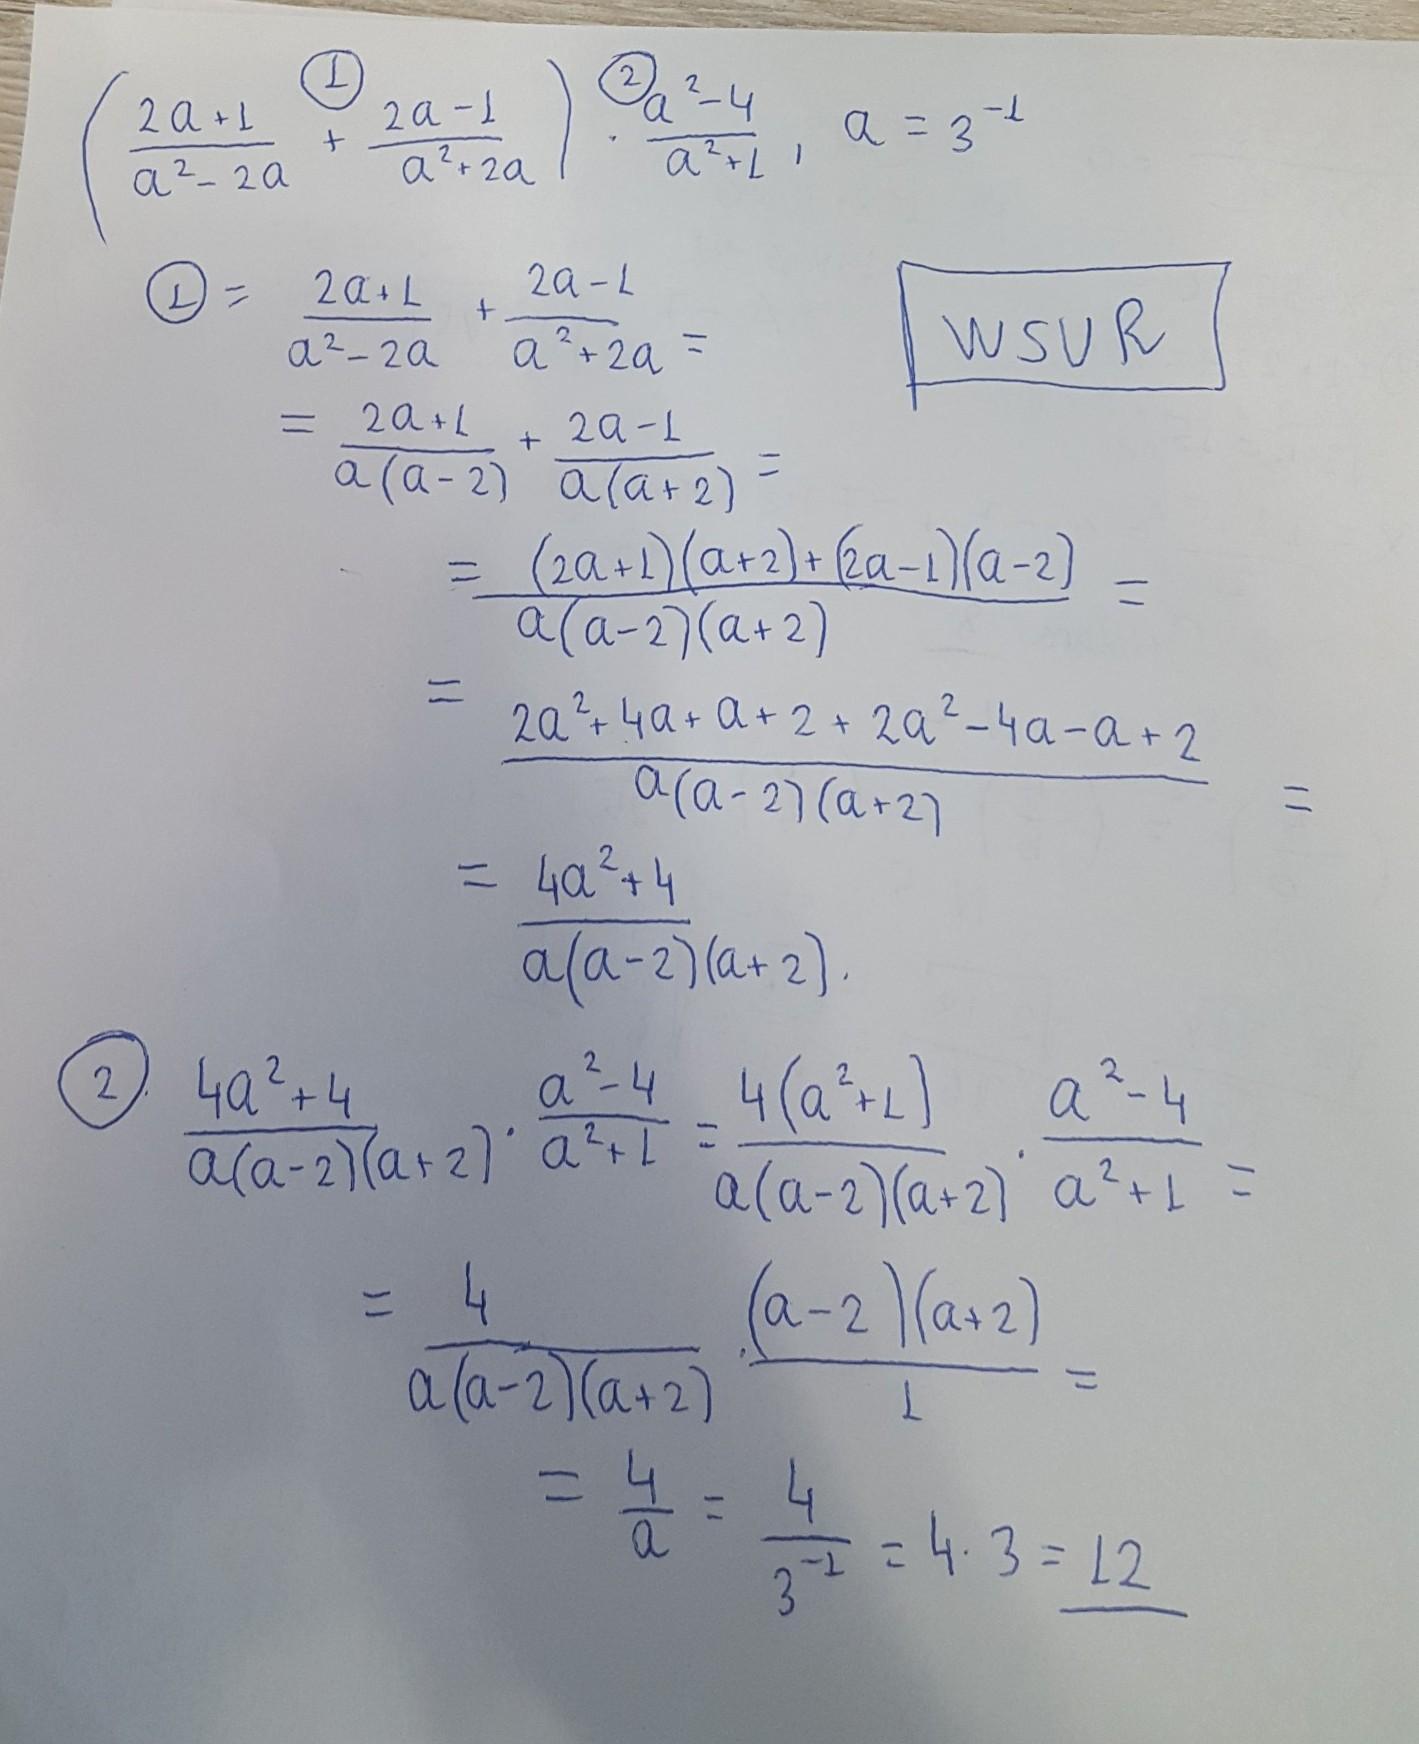 ( (2a+1)/(a²-2a) ① + (2a-1)/(a²+2a) ) ② · (a²-4)/(a²+1), a = 3⁻¹
① = (2a+1)/(a²-2a) + (2a-1)/(a²+2a) =
WSUR
= (2a+1)/(a(a-2)) + (2a-1)/(a(a+2)) =
= ((2a+1)(a+2)+(2a-1)(a-2))/(a(a-2)(a+2)) =
= (2a²+4a+a+2+2a²-4a-a+2)/(a(a-2)(a+2)) =
= (4a²+4)/(a(a-2)(a+2)).
②. (4a²+4)/(a(a-2)(a+2)) · (a²-4)/(a²+1) = (4(a²+1))/(a(a-2)(a+2)) · (a²-4)/(a²+1) =
= 4/(a(a-2)(a+2)) · ((a-2)(a+2))/1 =
= 4/a = 4/3⁻¹ = 4·3 = 12